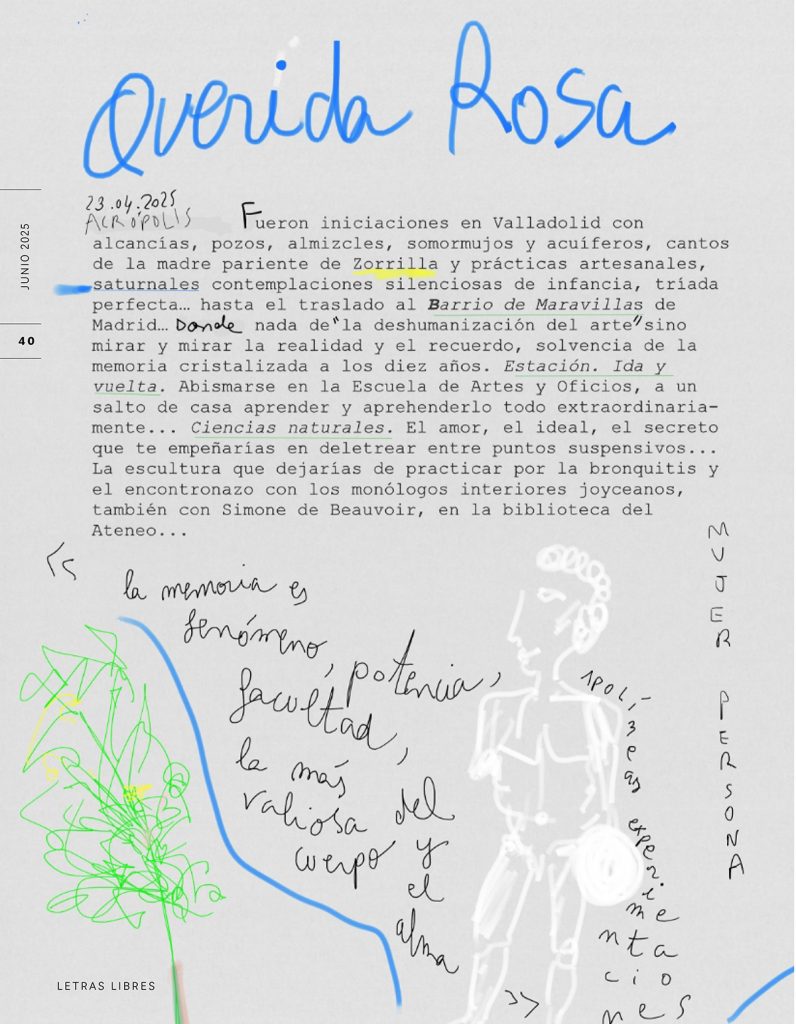 Querida Rosa
JUNIO 2025
40
23.04.2025
ACRÓPOLIS
Fueron iniciaciones en Valladolid con
alcancías, pozos, almizcles, somormujos y acuíferos, cantos
de la madre pariente de Zorrilla y prácticas artesanales,
saturnales contemplaciones silenciosas de infancia, tríada
perfecta… hasta el traslado al Barrio de Maravillas de
Madrid… Donde nada de "la deshumanización del arte" sino
mirar y mirar la realidad y el recuerdo, solvencia de la
memoria cristalizada a los diez años. Estación. Ida y
vuelta. Abismarse en la Escuela de Artes y Oficios, a un
salto de casa aprender y aprehenderlo todo extraordinaria-
mente... Ciencias naturales. El amor, el ideal, el secreto
que te empeñarías en deletrear entre puntos suspensivos...
La escultura que dejarías de practicar por la bronquitis y
el encontronazo con los monólogos interiores joyceanos,
también con Simone de Beauvoir, en la biblioteca del
Ateneo...
<<
la memoria es
fenómeno,
potencia,
facultad,
la más
valiosa del
cuerpo y
el
alma
>>
APOLÍneas experimentaciones
MUJER PERSONA
LETRAS LIBRES